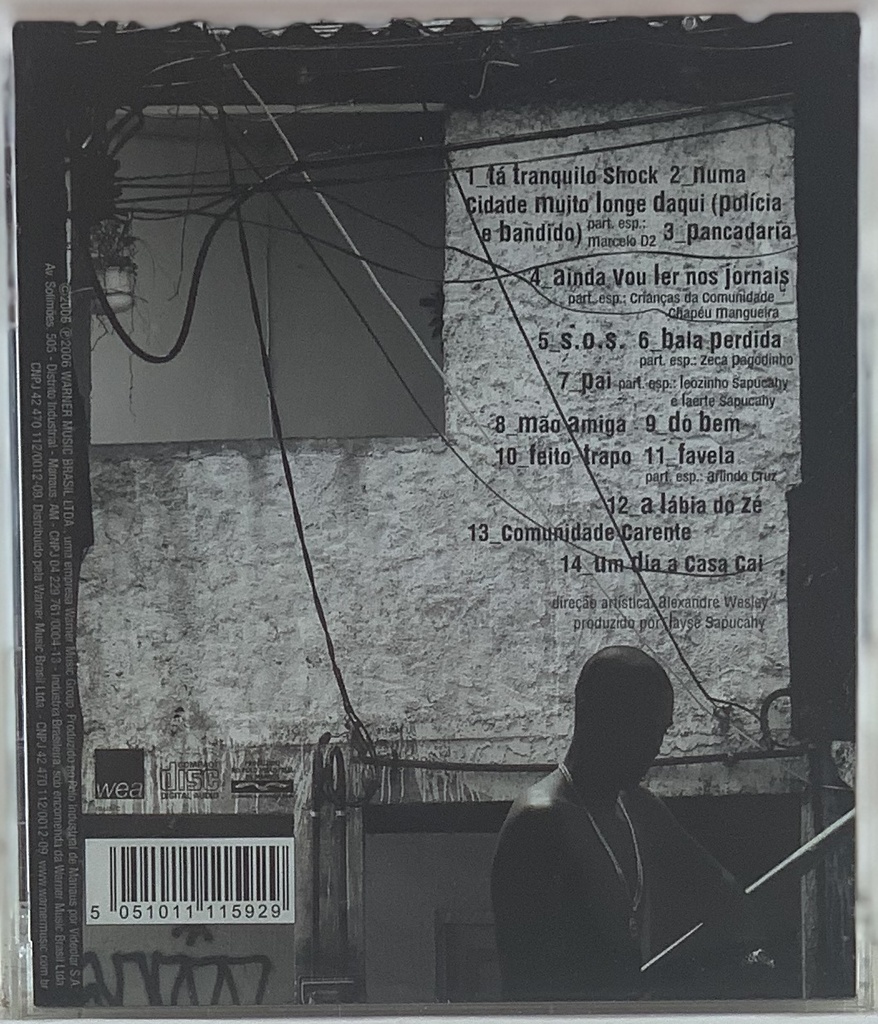 1_tá tranquilo Shock 2_numa
Cidade muito longe daqui (polícia
e bandido) part. esp.: Marcelo D2 3_pancadaria
4_ainda Vou ler nos jornais
part. esp.: Crianças da Comunidade
Chapéu Mangueira
5_S.O.S. 6_bala perdida
part. esp.: Zeca Pagodinho
7_pai part. esp.: leozinho Sapucahy
e laerte Sapucahy
8_mão amiga 9_do bem
10_feito trapo 11_favela
part. esp.: arlindo Cruz
12_a lábia do Zé
13_Comunidade Carente
14_um dia a Casa Cai
direção artística: alexandre Wesley
produzido por: layse Sapucahy
©2006 ℗2006 WARNER MUSIC BRASIL LTDA., uma empresa Warner Music Group. Produzido no Pólo Industrial de Manaus por Videolar S.A.
Av. Solimões, 505 - Distrito Industrial - Manaus, AM - CNPJ 04.229.761/0004-13 - Indústria Brasileira, sob encomenda da Warner Music Brasil Ltda.
CNPJ 42.470.112/0012-09. Distribuído pela Warner Music Brasil Ltda. - CNPJ 42.470.112/0012-09. www.warnermusic.com.br
wea
COMPACT
disc
DIGITAL AUDIO
5 051011 115929